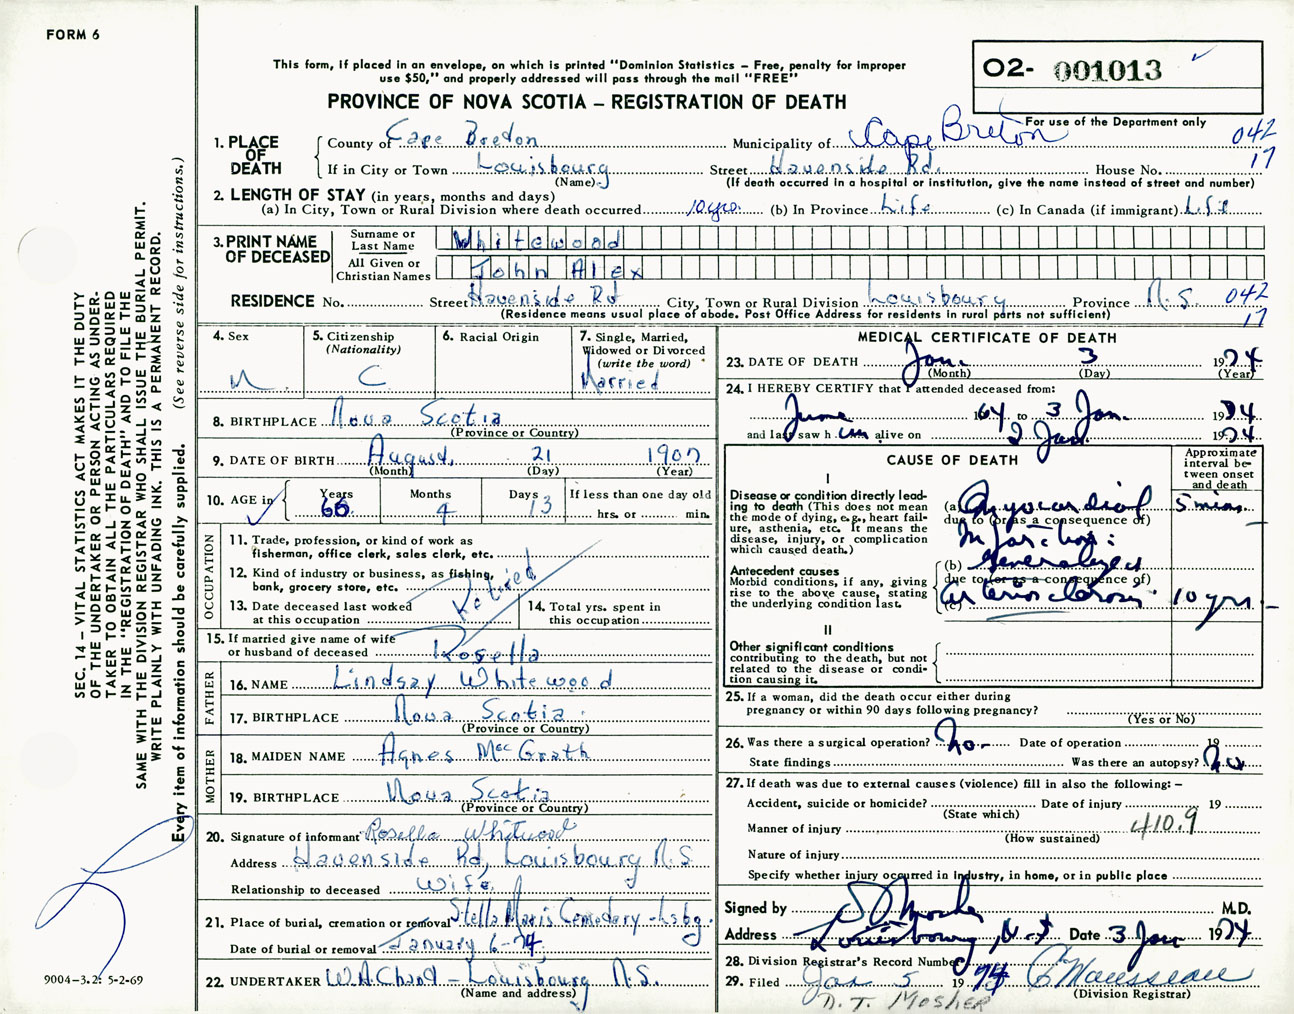 FORM 6
This form, if placed in an envelope, on which is printed "Dominion Statistics – Free, penalty for improper
use $50," and properly addressed will pass through the mail "FREE"
PROVINCE OF NOVA SCOTIA – REGISTRATION OF DEATH
O2- 001013
For use of the Department only
1. PLACE OF DEATH
County of Cape Breton Municipality of Cape Breton 042
If in City or Town Louisbourg Street Havenside Rd. House No. 17
(Name) (If death occurred in a hospital or institution, give the name instead of street and number)
2. LENGTH OF STAY (in years, months and days)
(a) In City, Town or Rural Division where death occurred 10 yrs. (b) In Province Life (c) In Canada (if immigrant) Life
3. PRINT NAME OF DECEASED
Surname or Last Name Whitewood
All Given or Christian Names John Alex
RESIDENCE No. Street Havenside Rd City, Town or Rural Division Louisbourg Province N.S. 042
(Residence means usual place of abode. Post Office Address for residents in rural parts not sufficient) 17
4. Sex M.
5. Citizenship (Nationality) C
6. Racial Origin
7. Single, Married, Widowed or Divorced (write the word) Married
8. BIRTHPLACE Nova Scotia
(Province or Country)
9. DATE OF BIRTH August 21 1907
(Month) (Day) (Year)
10. AGE in Years 66 Months 4 Days 13 If less than one day old
hrs. or min.
OCCUPATION
11. Trade, profession, or kind of work as
fisherman, office clerk, sales clerk, etc.
12. Kind of industry or business, as fishing,
bank, grocery store, etc.
Retired
13. Date deceased last worked
at this occupation
14. Total yrs. spent in
this occupation
15. If married give name of wife
or husband of deceased Rosella
FATHER
16. NAME Lindsay Whitewood
17. BIRTHPLACE Nova Scotia
(Province or Country)
MOTHER
18. MAIDEN NAME Agnes McGrath
19. BIRTHPLACE Nova Scotia
(Province or Country)
20. Signature of informant Rosella Whitwood
Address Havenside Rd, Louisbourg N.S.
Relationship to deceased Wife
21. Place of burial, cremation or removal Stella Maris Cemedary - Lsbg.
Date of burial or removal January 6-74
22. UNDERTAKER W.A. Chant - Louisbourg N.S.
(Name and address)
MEDICAL CERTIFICATE OF DEATH
23. DATE OF DEATH Jan. 3 1974
(Month) (Day) (Year)
24. I HEREBY CERTIFY that I attended deceased from:
June 64 to 3 Jan. 1974
and last saw him alive on 2 Jan. 1974
CAUSE OF DEATH
Approximate interval between onset and death
I
Disease or condition directly leading to death (This does not mean the mode of dying, e.g., heart failure, asthenia, etc. It means the disease, injury, or complication which caused death.)
(a) Myocardial 5 mins.
due to (or as a consequence of)
Infarction:
(b) Generalized
due to (or as a consequence of)
Antecedent causes
Morbid conditions, if any, giving rise to the above cause, stating the underlying condition last.
(c) arteriosclerosis 10 yrs.
II
Other significant conditions
contributing to the death, but not related to the disease or condition causing it.
25. If a woman, did the death occur either during
pregnancy or within 90 days following pregnancy?
(Yes or No)
26. Was there a surgical operation? No- Date of operation 19
State findings Was there an autopsy? No
27. If death was due to external causes (violence) fill in also the following: –
Accident, suicide or homicide? Date of injury 19
(State which)
Manner of injury 410.9
(How sustained)
Nature of injury
Specify whether injury occurred in industry, in home, or in public place
Signed by Mosher M.D.
Address Louisbourg, N.S Date 3 Jan 1974
28. Division Registrar's Record Number
29. Filed Jan 5 1974
(Division Registrar)
D. T. MOSHER
SEC. 14 – VITAL STATISTICS ACT MAKES IT THE DUTY
OF THE UNDERTAKER OR PERSON ACTING AS UNDER-
TAKER TO OBTAIN ALL THE PARTICULARS REQUIRED
IN THE "REGISTRATION OF DEATH" AND TO FILE THE
SAME WITH THE DIVISION REGISTRAR WHO SHALL ISSUE THE BURIAL PERMIT.
WRITE PLAINLY WITH UNFADING INK. THIS IS A PERMANENT RECORD.
Every item of information should be carefully supplied. (See reverse side for instructions.)
9004-3.2: 5-2-69